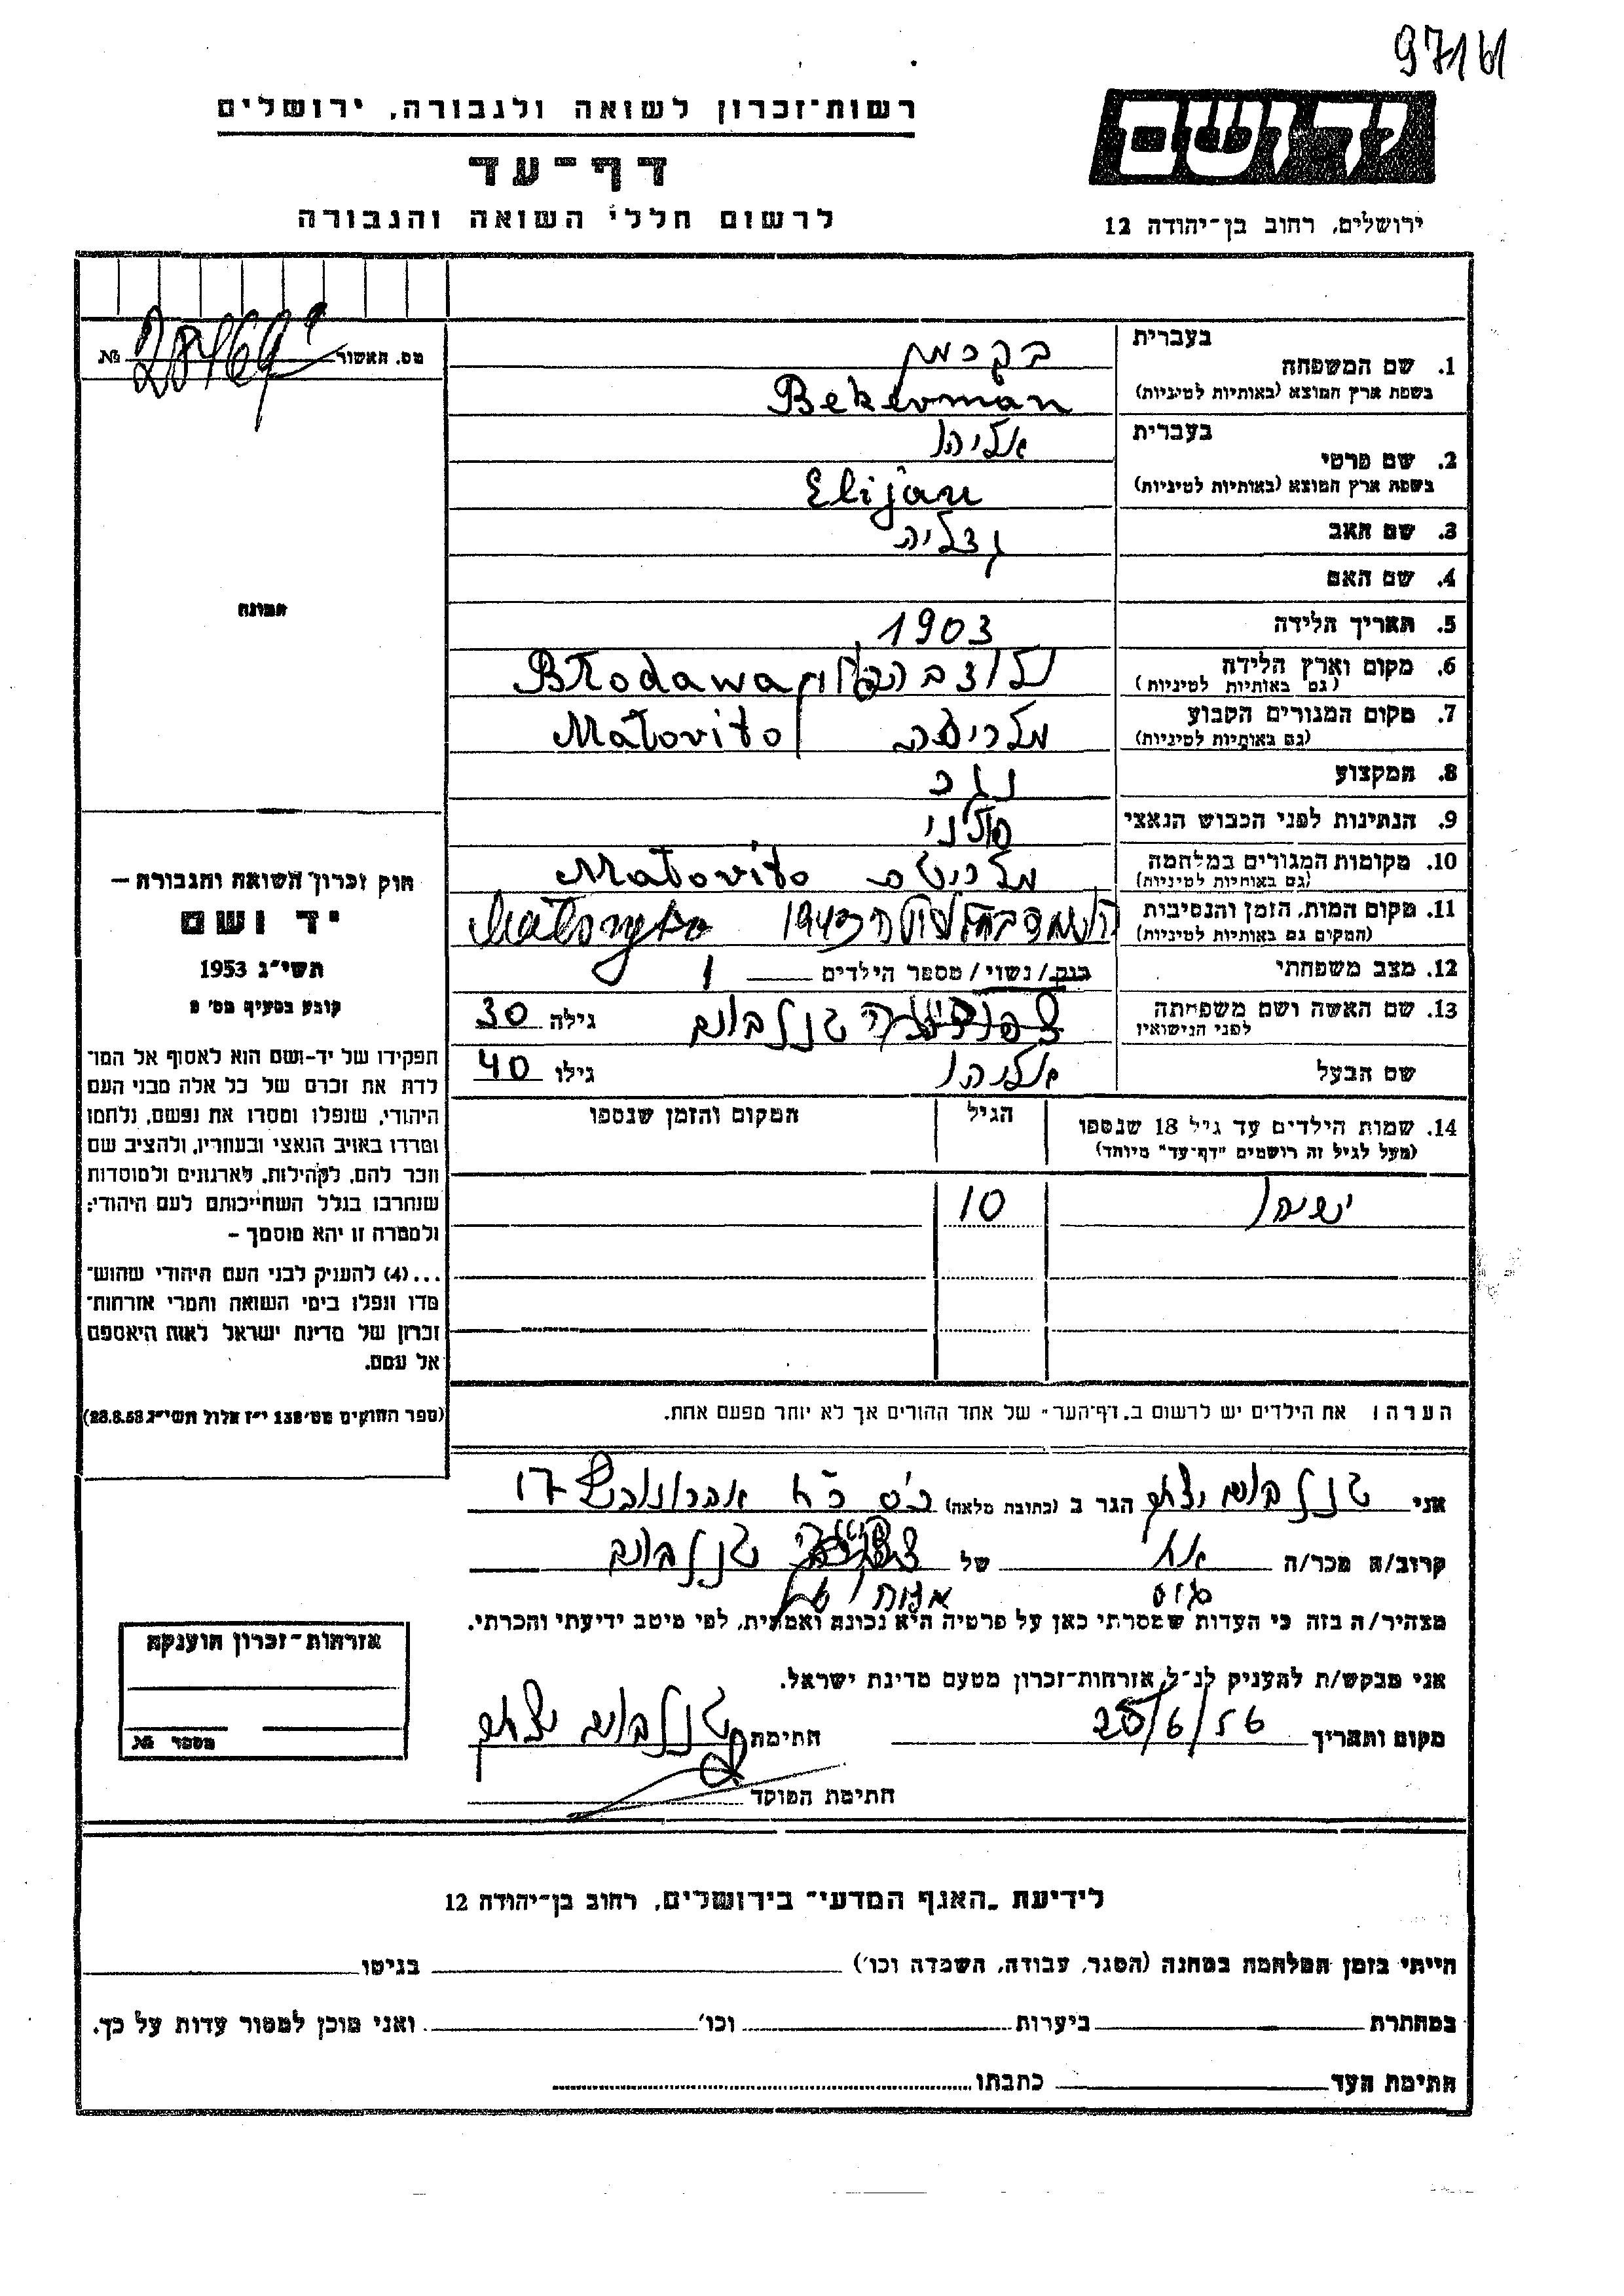 97161
רשות־זכרון לשואה ולגבורה, ירושלים
דף־עד
לרשום חללי השואה והגבורה
יד ושם
ירושלים, רחוב בן־יהודה 12
מס. האשור № 
בעברית
1. שם המשפחה בקרמן
בשפת ארץ המוצא (באותיות לטיניות) Bekerman
בעברית אליהו
2. שם פרטי
בשפת ארץ המוצא (באותיות לטיניות) Elijau
3. שם האב גדליה
4. שם האם
5. תאריך הלידה 1903
6. מקום וארץ הלידה
(גם באותיות לטיניות)
7. מקום המגורים הקבוע
(גם באותיות לטיניות)
8. המקצוע נגר
9. הנתינות לפני הכבוש הנאצי פולני
10. מקומות המגורים במלחמה
(גם באותיות לטיניות)
11. מקום המות, הזמן והנסיבות 1943
(המקום גם באותיות לטיניות)
12. מצב משפחתי רווק / נשוי / מספר הילדים 1
13. שם האשה ושם משפחתה טננבוים גילה 30
לפני הנישואין
שם הבעל אליהו גילו 40
14. שמות הילדים עד גיל 18 שנספו הגיל המקום והזמן שנספו
(מעל לגיל זה רושמים "דף־עד" מיוחד)
ישיהו 10
הערה: את הילדים יש לרשום ב„דף־העד" של אחד ההורים אך לא יותר מפעם אחת.
תמונה
חוק זכרון השואה והגבורה —
יד ושם
תשי"ג 1953
קובע בסעיף מס' 2
תפקידו של יד־ושם הוא לאסוף אל המו־
לדת את זכרם של כל אלה מבני העם
היהודי, שנפלו ומסרו את נפשם, נלחמו
ומרדו באויב הנאצי ובעוזריו, ולהציב שם
וזכר להם, לקהילות, לארגונים ולמוסדות
שנחרבו בגלל השתייכותם לעם היהודי;
ולמטרה זו יהא מוסמך —
...(4) להעניק לבני העם היהודי שהוש־
מדו ונפלו בימי השואה והמרי אזרחות־
זכרון של מדינת ישראל לאות היאספם
אל עמם.
(ספר החוקים מס' 132 י"ז אלול תשי"ג 28.8.53)
אני טננבוים יצחק הגר ב (כתובת מלאה) 17
קרוב/ה מכר/ה של טננבוים
מצהיר/ה בזה כי העדות שמסרתי כאן על פרטיה היא נכונה ואמתית, לפי מיטב ידיעתי והכרתי.
אני מבקש/ת להעניק לנ"ל אזרחות־זכרון מטעם מדינת ישראל.
מקום ותאריך 25/6/56 חתימת טננבוים יצחק
חתימת הפוקד
אזרחות־זכרון הוענקה
מספר №
לידיעת „האגף המדעי" בירושלים, רחוב בן־יהודה 12
הייתי בזמן המלחמה במחנה (הסגר, עבודה, השמדה וכו') בגיטו
במחתרת ביערות וכו' ואני מוכן למסור עדות על כך.
חתימת העד כתבתו